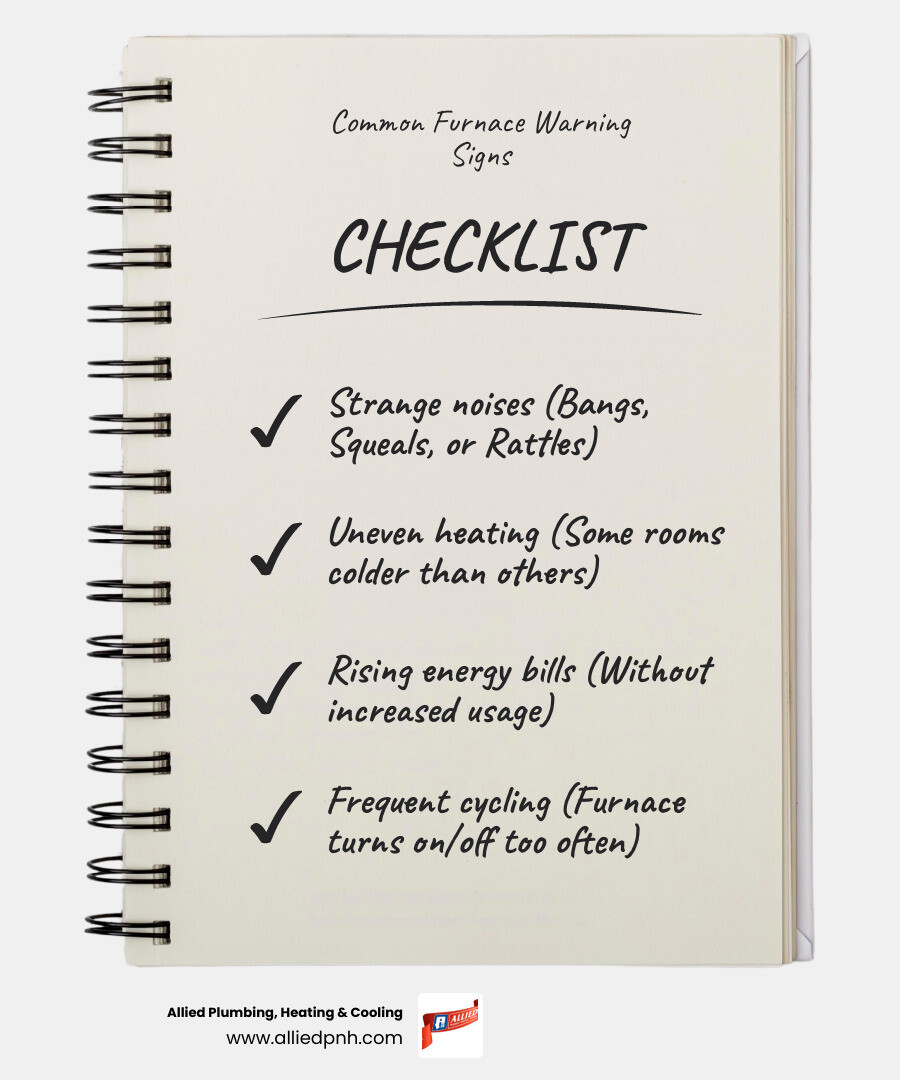 Common Furnace Warning
Signs
CHECKLIST
Strange noises (Bangs,
Squeals, or Rattles)
Uneven heating (Some rooms
colder than others)
Rising energy bills (Without
increased usage)
Frequent cycling (Furnace
turns on/off too often)
Allied Plumbing, Heating & Cooling
www.alliedpnh.com
ALLIED